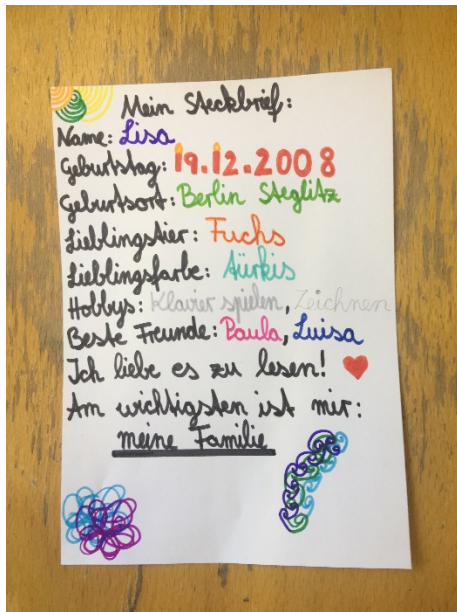 Mein Steckbrief:
Name: Lisa
Geburtstag: 19.12.2008
Geburtsort: Berlin Steglitz
Lieblingstier: Fuchs
Lieblingsfarbe: Türkis
Hobbys: Klavier spielen, Zeichnen
Beste Freunde: Paula, Luisa
Ich liebe es zu lesen!
Am wichtigsten ist mir:
meine Familie